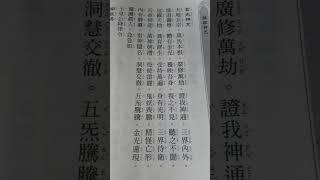 金光神咒
天地玄宗。萬炁本根。廣修萬劫。證我神通。三界內外。
惟道獨尊。體有金光。覆映吾身。視之不見。聽之不聞。
包羅天地。養育群生。受持萬遍。身有光明。三界侍衛。
五帝司迎。萬神朝禮。役使雷霆。鬼妖喪膽。精怪亡形。
內有霹靂。雷神隱名。洞慧交徹。五炁騰騰。金光速現。
覆護真人。急急如
玉皇上帝律令